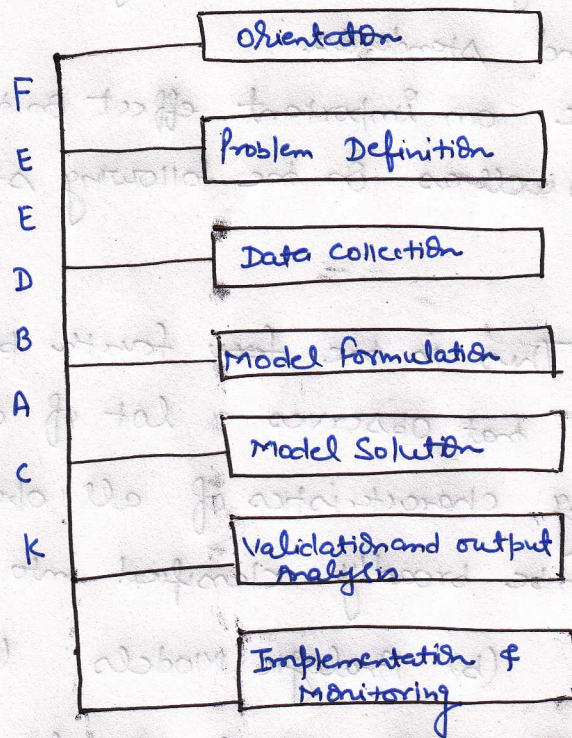 Orientation
F
E
E
D
B
A
C
K
Problem Definition
Data Collection
Model formulation
Model Solution
Validation and output
Analysis
Implementation &
Monitoring